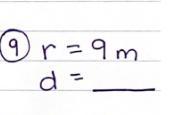 ⑨ r = 9 m
d = ____